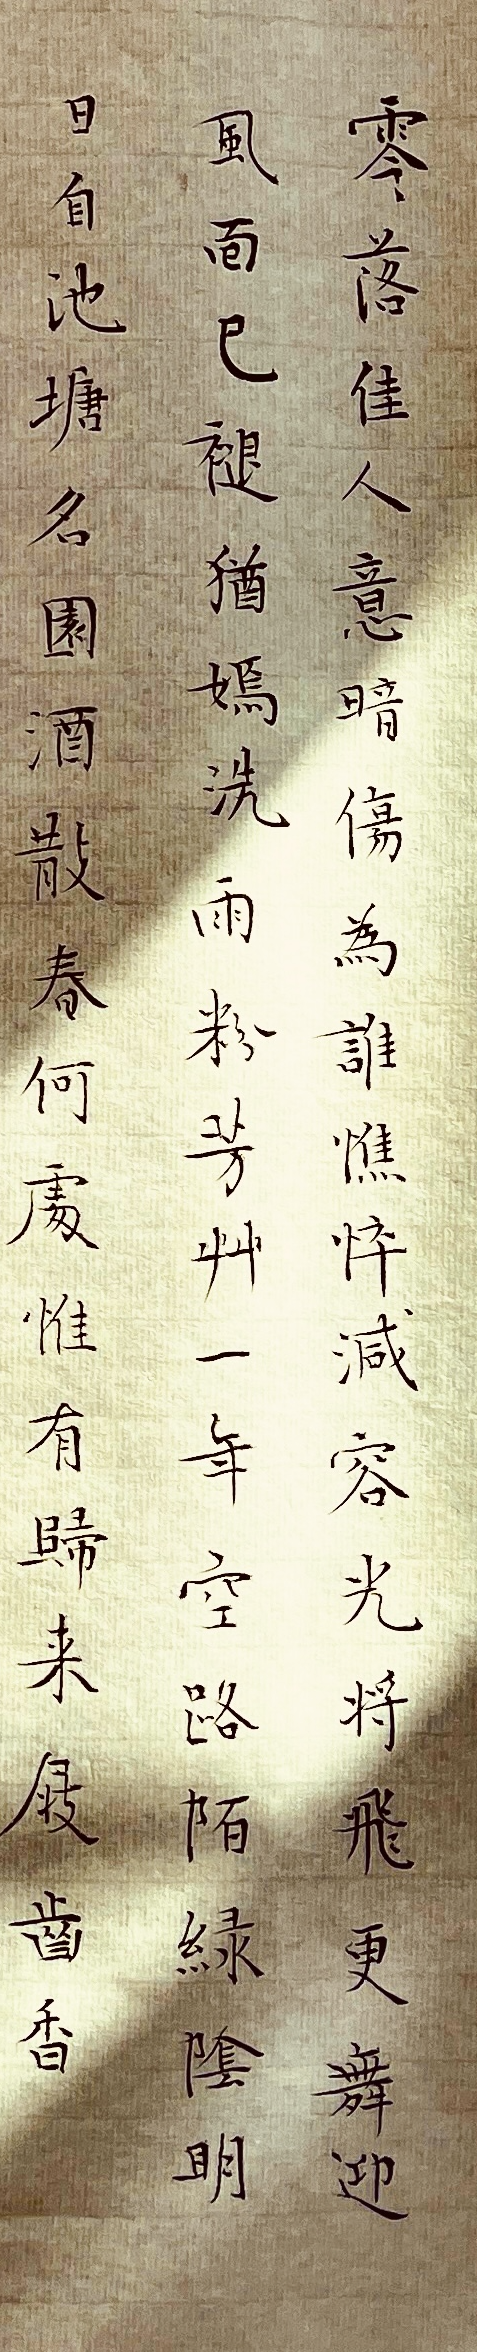 零落佳人意暗傷為誰憔悴減容光将飛更舞迎
風面已褪猶嫣洗雨粉芳艸一年空路陌綠陰明
日自池塘名園酒散春何處惟有歸来屐齒香